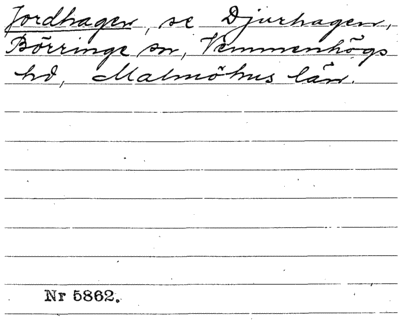 Jordhagen, se Djurhagen,
Börringe sn, Vemmenhögs
hd, Malmöhus län.
Nr 5862.